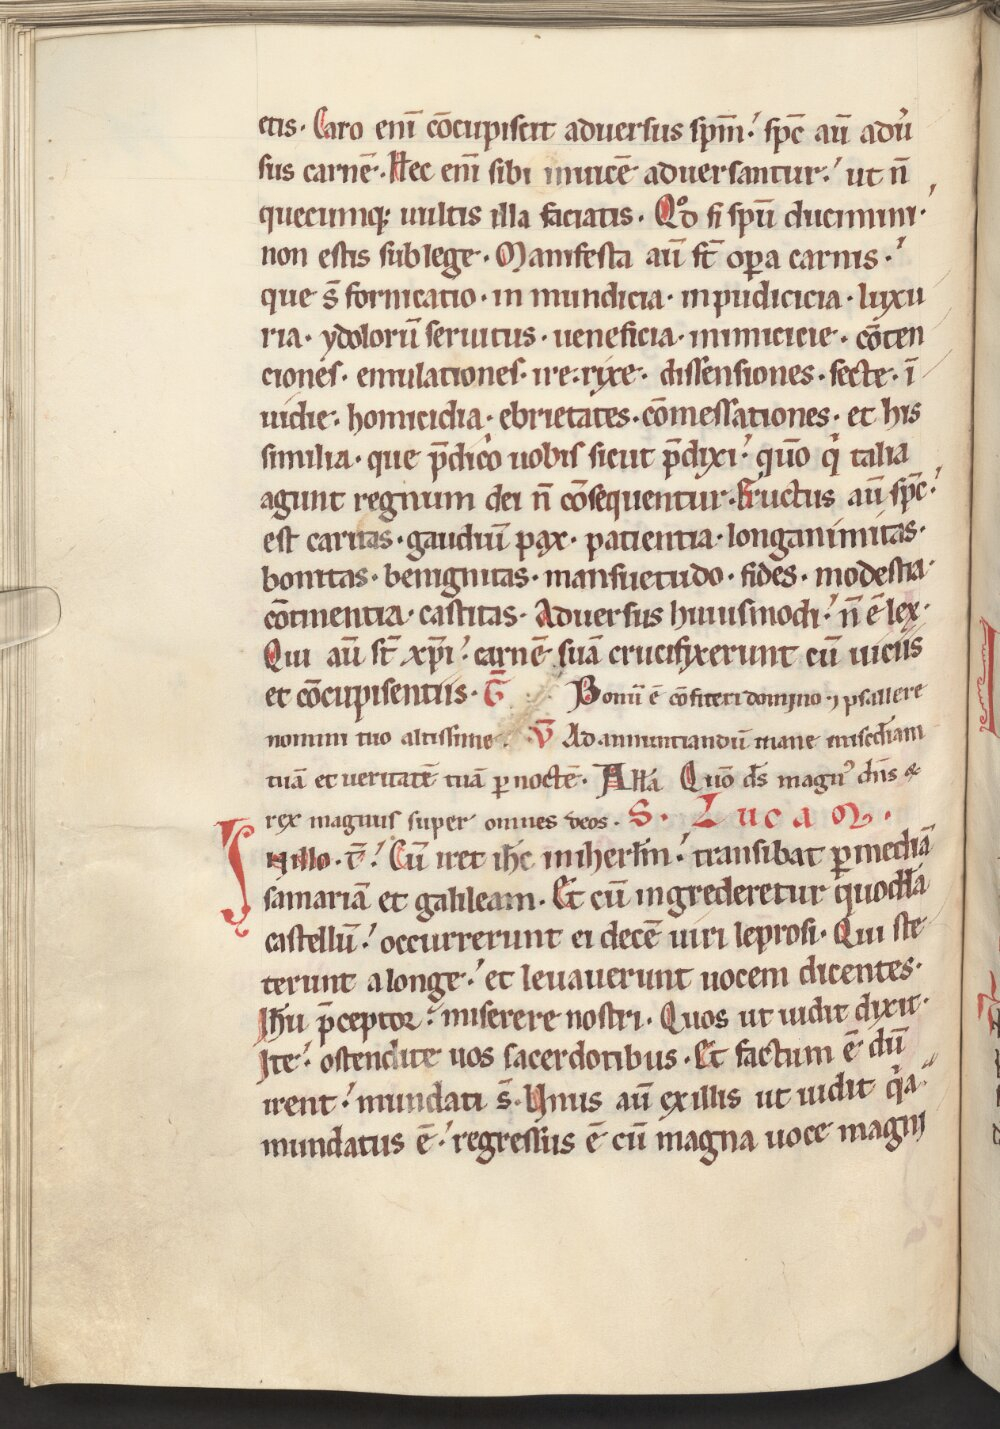 etis. Caro eni̅ co̅cupiscit aduersus sp̅m. sp̅c au̅ adu̓
sus carne̅. Hec eni̅ sibi inuice̅ aduersantur. ut n̅
quecumq; uultis illa faciatis. Qd̊ si sp̅u ducimini.
non estis sub lege. Manifesta au̅ st̅ op̲a carnis.
que s̅ fornicatio. in mundicia. inpudicicia. luxu
ria. ydoloru̅ seruitus. ueneficia. inimicicie. co̅ten
ciones. emulationes. ire. rixe. dissensiones. secte. i̅
uidie. homicidia. ebrietates. co̅messationes. et his
similia. que p̅dico uobis sicut p̅dixi. quo̅ qͥ talia
agunt regnum dei n̅ co̅sequentur. Fructus au̅ sp̅c.
est caritas. gaudiu̅ pax. patientia. longanimitas.
bonitas. benignitas. mansuetudo. fides. modestia.
co̅tinentia. castitas. Aduersus huiusmodi. n̅ e̅ lex.
Qui au̅ st̅ xp̅i. carne̅ sua̅ crucifixerunt cu̅ uiciis
et co̅cupiscentiis. G̅ Bonu̅ e̅ co̅fiteri domino. ⁊ psallere
nomini tuo altissime. V̅ Ad annuntiandu̅ mane misedi̅am
tua̅ et ueritate̅ tua̅ p̲ nocte̅. All̅a Quo̅ ds̅ magn᾿ dn̅s &
rex magnus super omnes deos. S. LucaM.
In illo. t̅. Cu̅ iret ih̅c in iherl̅m. transibat p̲ media̅
samaria̅ et galileam. Et cu̅ ingrederetur quodda̅
castellu̅. occurrerunt ei dece̅ uiri leprosi. Qui ste
terunt a longe. et leuauerunt uocem dicentes.
Ih̅u p̅ceptor. miserere nostri. Quos ut uidit dixit.
Ite. ostendite uos sacerdotibus. Et factum e̅ du̅
irent. mundati s̅. Unus au̅ ex illis ut uidit qͥa
mundatus e̅. regressus e̅ cu̅ magna uoce magni